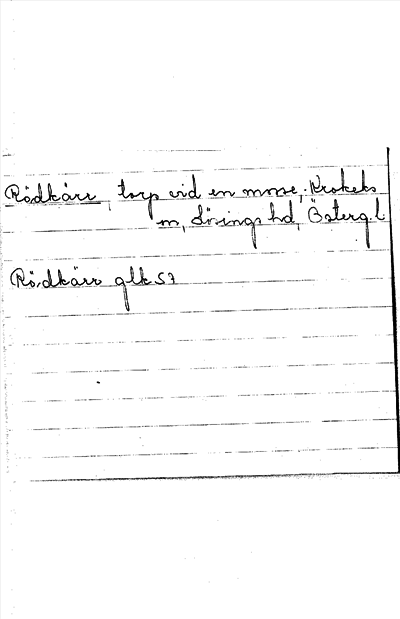 Rödkärr, torp vid en mosse, Krokeks
sn, Lösings hd, Österg. l
Rödkärr glk 57